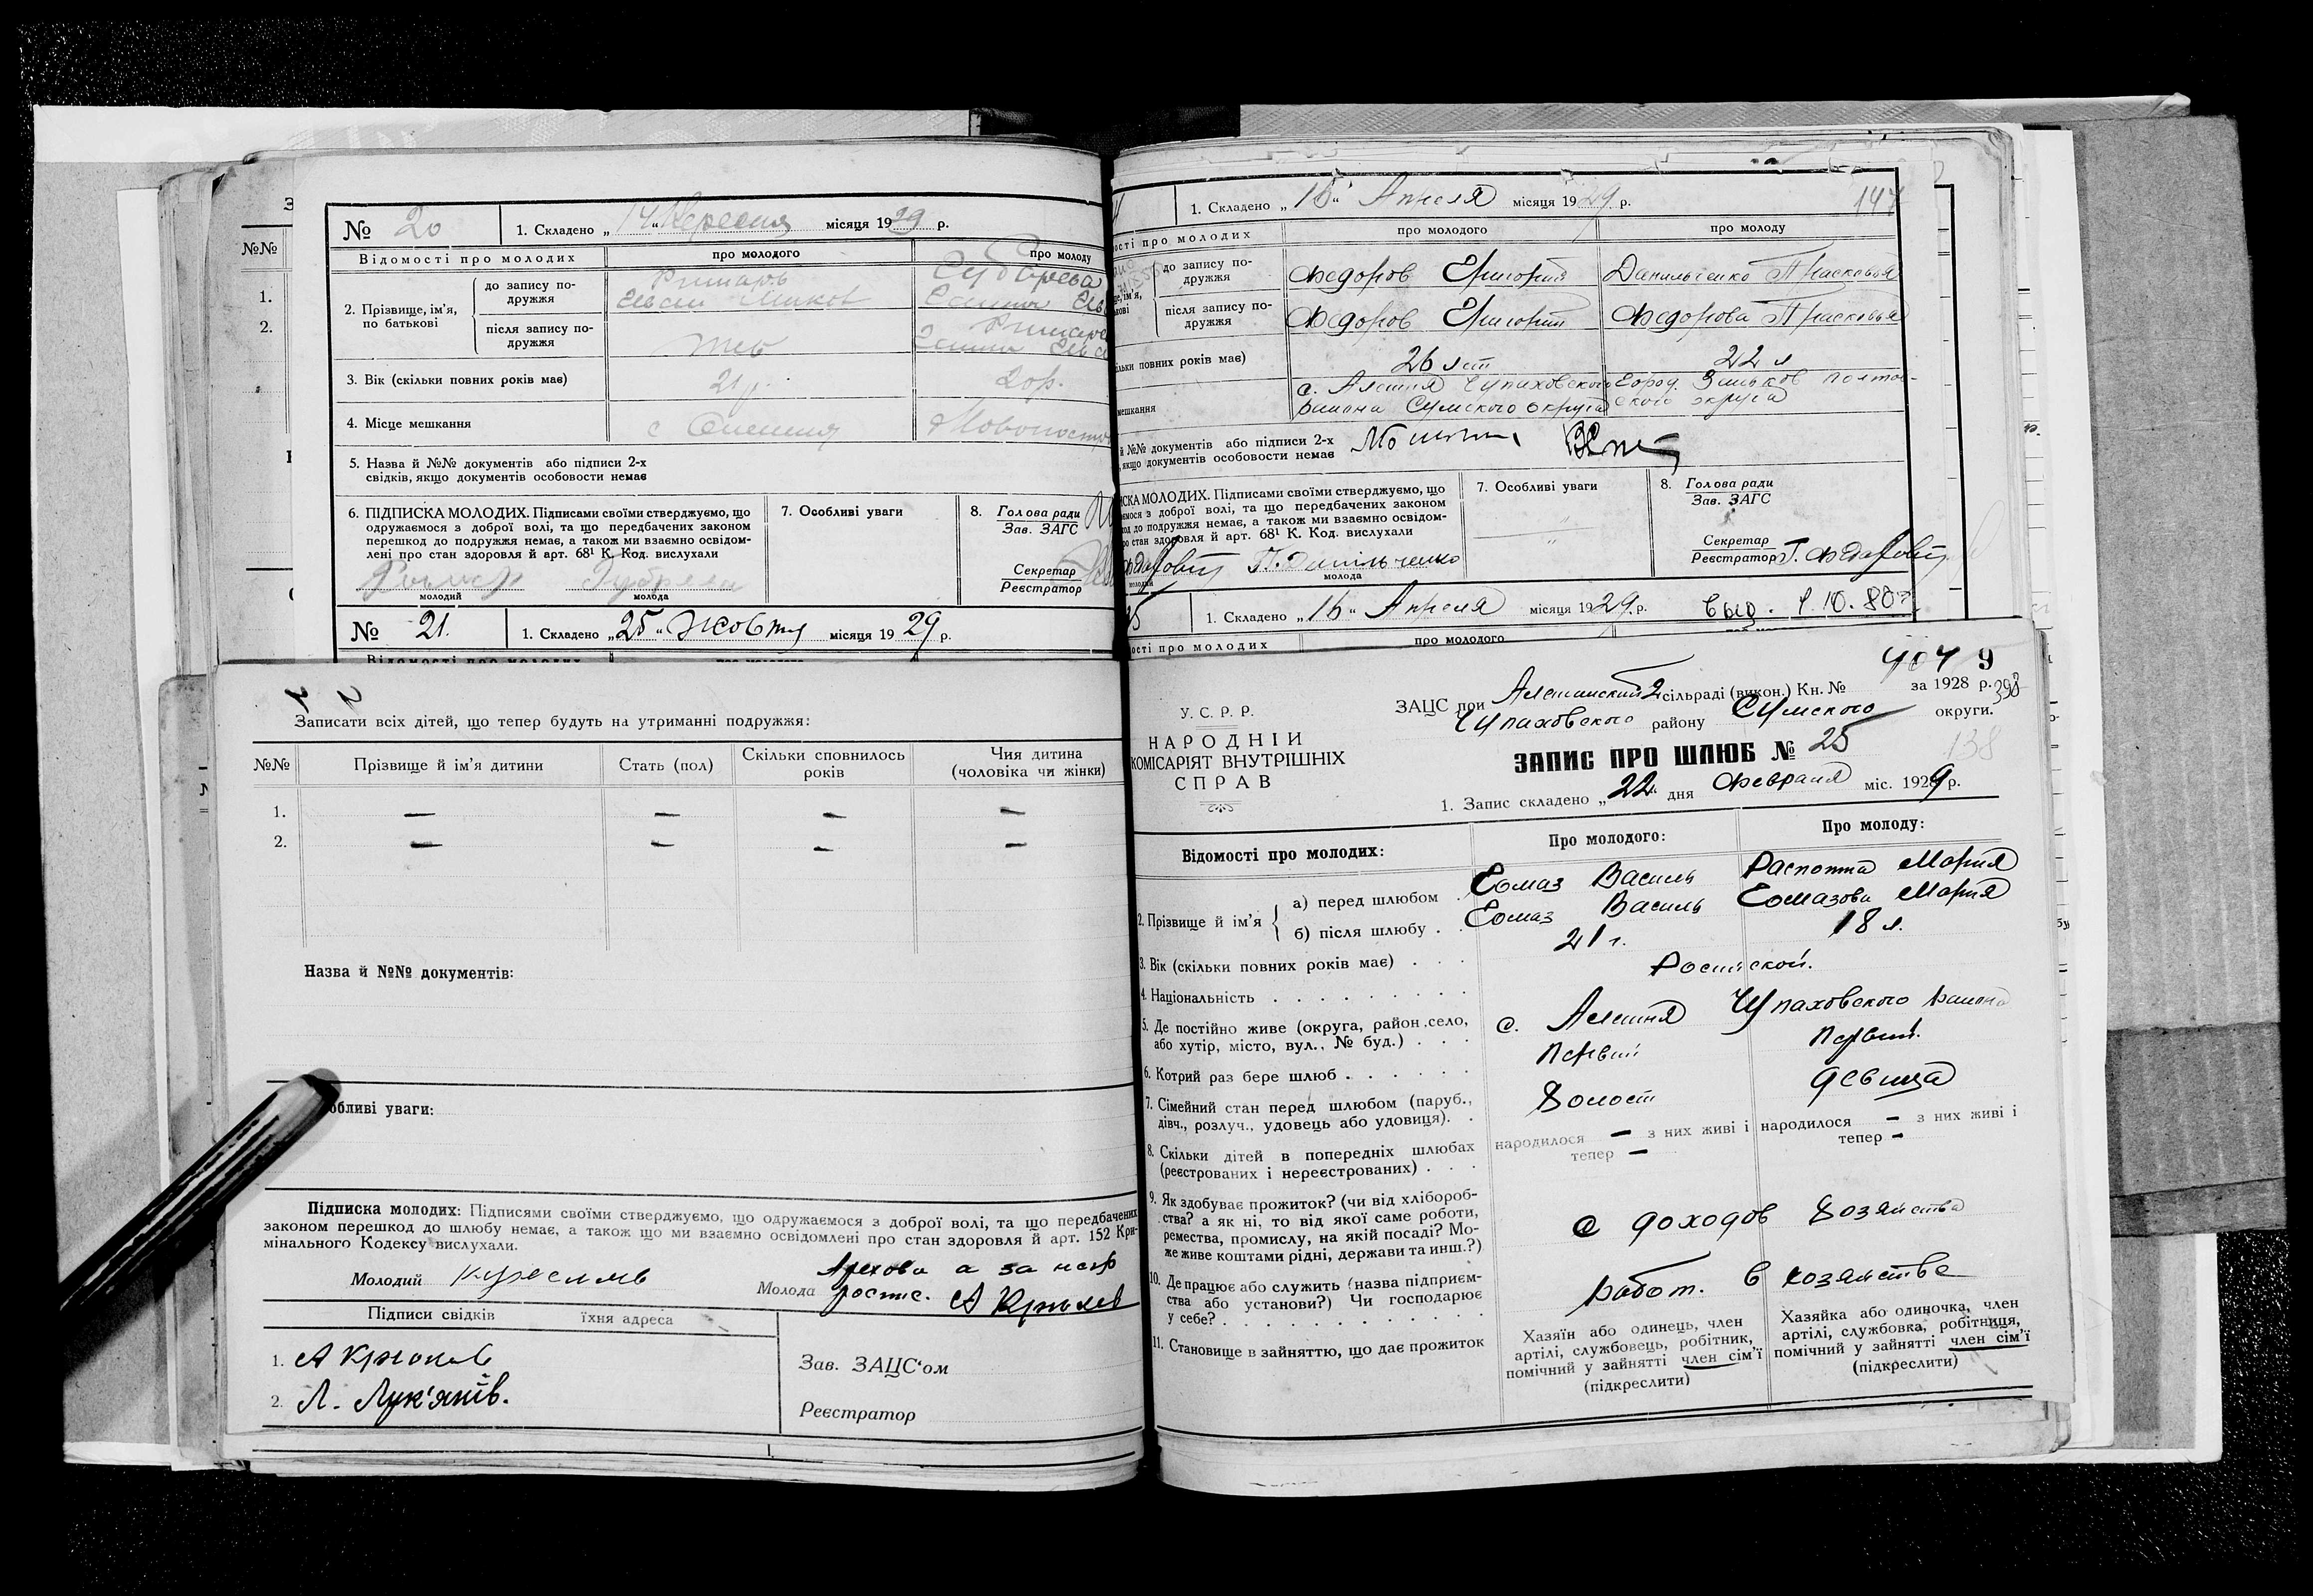 № 20
1. Складено „14“ Вересня місяця 1929 р.
Відомості про молодих
про молодого
про молоду
2. Прізвище, ім'я, по батькові
до запису по-
дружжя
після запису по-
дружжя
3. Вік (скільки повних років має)
21 р.
20 р.
4. Місце мешкання
5. Назва й №№ документів або підписи 2-х
свідків, якщо документів особовости немає
6. ПІДПИСКА МОЛОДИХ. Підписами своїми стверджуємо, що
одружаємося з доброї волі, та що передбачених законом
перешкод до подружжя немає, а також ми взаємно освідом-
лені про стан здоровля й арт. 68¹ К. Код. вислухали
молодий
молода
7. Особливі уваги
8. Голова ради
Зав. ЗАГС
Секретар
Реєстратор
№ 21.
1. Складено „25“ Жовтня місяця 1929 р.
Записати всіх дітей, що тепер будуть на утриманні подружжя:
№№
Прізвище й ім'я дитини
Стать (пол)
Скільки сповнилось
років
Чия дитина
(чоловіка чи жінки)
1. — — — —
2. — — — —
Назва й №№ документів:
бливі уваги:
Підписка молодих: Підписями своїми стверджуємо, що одружаємося з доброї волі, та що передбачених
законом перешкод до шлюбу немає, а також що ми взаємно освідомлені про стан здоровля й арт. 152 Кри-
мінального Кодексу вислухали.
Молодий
Молода
а за неї
А Крюков
Підписи свідків
їхня адреса
1. А Крюков
2. Л. Лук'янів.
Зав. ЗАЦС'ом
Реєстратор
1. Складено „15“ Апреля місяця 1929 р.
147
ості про молодих
про молодого
про молоду
до запису по-
дружжя
Федоров Григорий
Данильченко Прасковья
після запису по-
дружжя
Федоров Григорий
Федорова Прасковья
ільки повних років має)
26 лет
22 л
мешкання
с. Алешня Чупаховского
района Сумского округа
город. Зиньков Полтав-
ского округа
й №№ документів або підписи 2-х
, якщо документів особовости немає
СКА МОЛОДИХ. Підписами своїми стверджуємо, що
ємося з доброї волі, та що передбачених законом
од до подружжя немає, а також ми взаємно освідом-
ро стан здоровля й арт. 68¹ К. Код. вислухали
молодий
молода
7. Особливі уваги
8. Голова ради
Зав. ЗАГС
Секретар
Реєстратор
25
1. Складено „16“ Апреля місяця 1929 р.
выд. 9.10.80 г
ості про молодих
про молодого
У. С. Р. Р.
НАРОДНІЙ
КОМІСАРІЯТ ВНУТРІШНІХ
СПРАВ
ЗАЦС при Алешнский 2 сільраді (викон.) Кн. № за 1928 р.
393
Чупаховского району Сумского округи.
ЗАПИС ПРО ШЛЮБ № 25
138
1. Запис складено „22“ дня Февраля міс. 1929 р.
Відомості про молодих:
Про молодого:
Про молоду:
2. Прізвище й ім'я
а) перед шлюбом
Гомаз Василь
Распопа Мария
б) після шлюбу
Гомаз Василь
Гомазова Мария
3. Вік (скільки повних років має)
21 г.
18 л.
4. Національність
Российской.
5. Де постійно живе (округа, район, село,
або хутір, місто, вул., № буд.)
с. Алешня Чупаховского района
6. Котрий раз бере шлюб
первый
первый.
7. Сімейний стан перед шлюбом (паруб.,
дівч., розлуч., удовець або удовиця).
холост
девица
8. Скільки дітей в попередніх шлюбах
(реєстрованих і нереєстрованих)
народилося — з них живі і
тепер —
народилося — з них живі і
тепер —
9. Як здобуває прожиток? (чи від хлібороб-
ства? а як ні, то від якої саме роботи,
ремества, промислу, на якій посаді? Мо-
же живе коштами рідні, держави та инш.?)
с доходов хозяйства
10. Де працює або служить (назва підприєм-
ства або установи?) Чи господарює
у себе?
работ. в хозяйстве
11. Становище в зайняттю, що дає прожиток
Хазяїн або одинець, член
артілі, службовець, робітник,
помічний у зайнятті член сім'ї
(підкреслити)
Хазяйка або одиночка, член
артілі, службовка, робітниця,
помічний у зайнятті член сім'ї
(підкреслити)